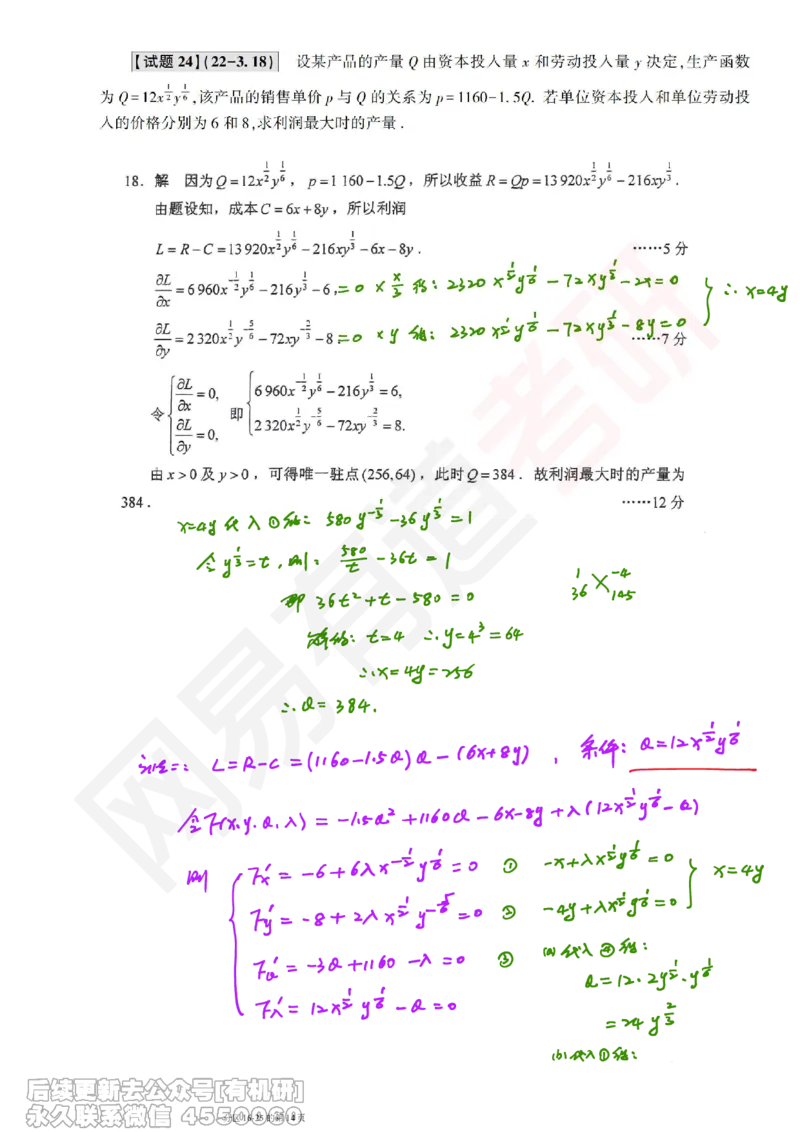 【试题 24】(22-3.18) 设某产品的产量 Q 由资本投入量 x 和劳动投入量 y 决定,生产函数
为 Q=12x^{1/2}y^{1/6},该产品的销售单价 p 与 Q 的关系为 p=1160-1.5Q. 若单位资本投入和单位劳动投
入的价格分别为 6 和 8,求利润最大时的产量.
18. 解 因为Q=12x^{1/2}y^{1/6}, p=1 160-1.5Q, 所以收益 R=Qp=13 920x^{1/2}y^{1/6}-216xy^{1/3}.
由题设知, 成本C=6x+8y, 所以利润
L=R-C=13 920x^{1/2}y^{1/6}-216xy^{1/3}-6x-8y. ……5 分
∂L/∂x=6 960x^{-1/2}y^{1/6}-216y^{1/3}-6, =0 × x/3 得: 2320x^{1/2}y^{1/6}-72xy^{1/3}-2x=0
∴ x=4y
∂L/∂y=2 320x^{1/2}y^{-5/6}-72xy^{-2/3}-8 =0 ×y 得: 2320x^{1/2}y^{1/6}-72xy^{1/3}-8y=0
……7 分
令 {∂L/∂x=0, ∂L/∂y=0, 即 {6 960x^{-1/2}y^{1/6}-216y^{1/3}=6, 2 320x^{1/2}y^{-5/6}-72xy^{-2/3}=8.
由 x>0 及 y>0, 可得唯一驻点 (256,64), 此时 Q=384. 故利润最大时的产量为
384. ……12 分
x=4y 代入①得: 580y^{-1/3}-36y^{1/3}=1
令 y^{1/3}=t, 则: 580/t-36t=1
即 36t²+t-580=0
1 -4
36 145
解得: t=4 ∴y=4³=64
∴x=4y=256
∴Q=384.
法二: L=R-C=(1160-1.5Q)Q-(6x+8y), 条件: Q=12x^{1/2}y^{1/6}
令F(x,y,Q,λ)=-1.5Q²+1160Q-6x-8y+λ(12x^{1/2}y^{1/6}-Q)
则 F'x=-6+6λx^{-1/2}y^{1/6}=0 ① -x+λx^{1/2}y^{1/6}=0
x=4y
F'y=-8+2λx^{1/2}y^{-5/6}=0 ② -4y+λx^{1/2}y^{1/6}=0
F'Q=-3Q+1160-λ=0 ③ (a)代入④得:
Q=12·2y^{1/2}·y^{1/6}
F'λ=12x^{1/2}y^{1/6}-Q=0
=24y^{2/3}
(b)代入①得:
网易有道考研
后续更新去公众号[有机研]